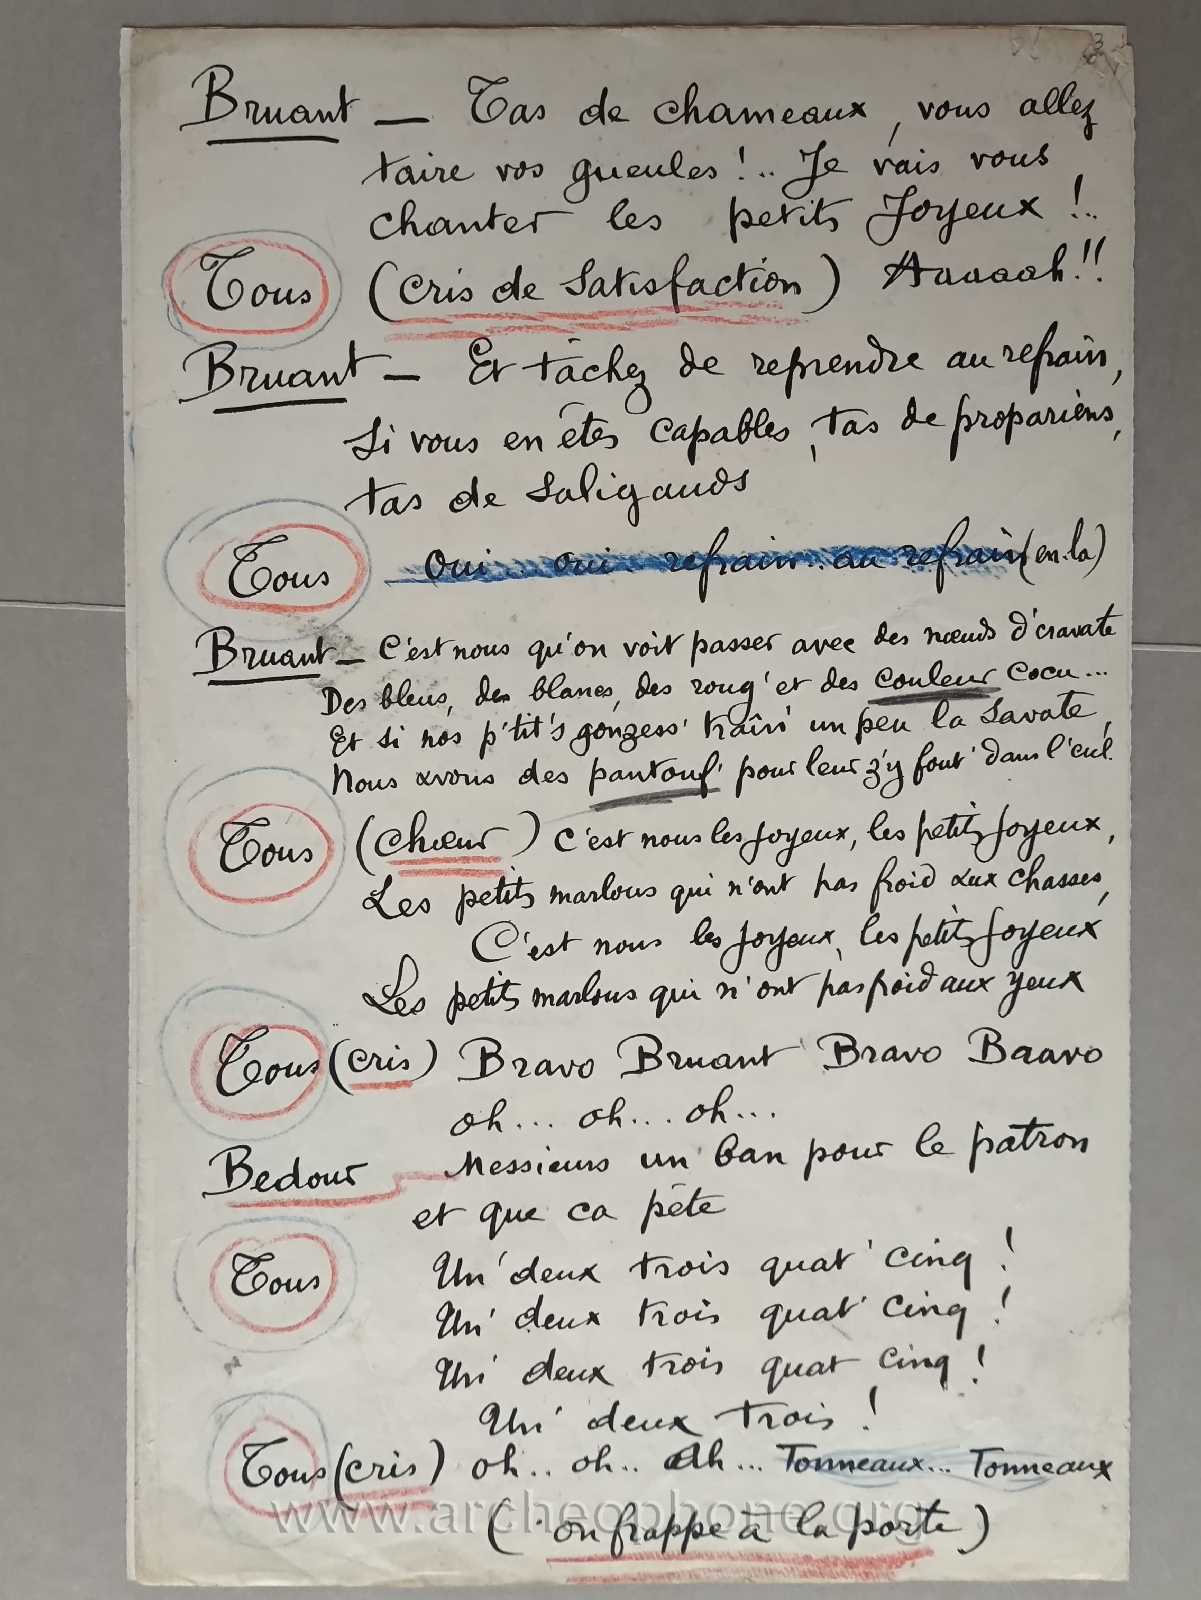 3
Bruant — Tas de chameaux, vous allez
taire vos gueules !.. Je vais vous
chanter les petits Joyeux !..
Tous (cris de satisfaction) Aaaaah !!
Bruant — Et tâchez de reprendre au refrain,
si vous en êtes capables, tas de propariens,
tas de saligauds
Tous Oui oui refrain.. au refrain (en la)
Bruant — C'est nous qu'on voit passer avec des nœuds d'cravate
Des bleus, des blancs, des roug' et des couleur cocu...
Et si nos p'tit's gonzess' traîn' un peu la savate,
Nous avons des pantouf' pour leur z'y fout' dans l'cul.
Tous (Chœur) C'est nous les joyeux, les petits joyeux,
Les petits marlous qui n'ont pas froid aux chasses,
C'est nous les joyeux, les petits joyeux
Les petits marlous qui n'ont pas froid aux yeux
Tous (cris) Bravo Bruant Bravo Baavo
oh... oh... oh...
Bedour Messieurs un ban pour le patron
et que ca pète
Tous Un' deux trois quat' cinq !
Un' deux trois quat' cinq !
Un' deux trois quat cinq !
Un' deux trois !
Tous (cris) oh.. oh.. Ah... Tonneaux... Tonneaux
(on frappe à la porte)
www.archeophone.org